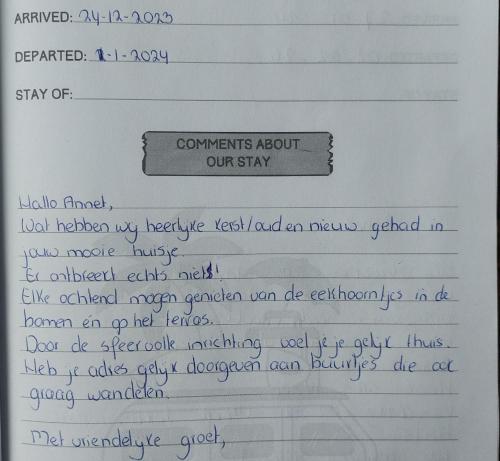 ARRIVED: 24-12-2023
DEPARTED: 1-1-2024
STAY OF:
COMMENTS ABOUT
OUR STAY
Hallo Annet,
Wat hebben wij heerlijke kerst/oud en nieuw gehad in
jouw mooie huisje.
Er ontbreekt echts niets!
Elke ochtend mogen genieten van de eekhoorntjes in de
bomen én op het terras.
Door de sfeervolle inrichting voel je je gelijk thuis.
Heb je adres gelijk doorgeven aan buurtjes die ook
graag wandelen.
Met vriendelijke groet,